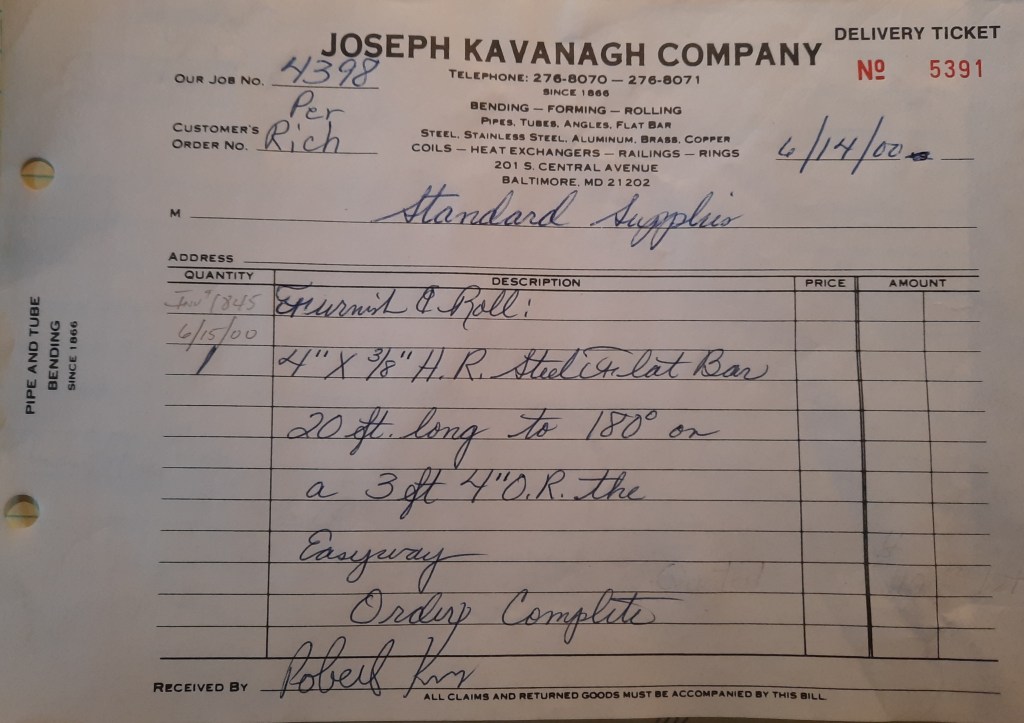 DELIVERY TICKET
JOSEPH KAVANAGH COMPANY
Nº 5391
OUR JOB NO. 4398
TELEPHONE: 276-8070 — 276-8071
SINCE 1866
BENDING — FORMING — ROLLING
PIPES, TUBES, ANGLES, FLAT BAR
STEEL, STAINLESS STEEL, ALUMINUM, BRASS, COPPER
COILS — HEAT EXCHANGERS — RAILINGS — RINGS
201 S. CENTRAL AVENUE
BALTIMORE, MD 21202
Per
CUSTOMER'S
ORDER NO. Rich
6/14/00
M Standard Supplies
ADDRESS
QUANTITY DESCRIPTION PRICE AMOUNT
Inv# 1845 Furnish & Roll:
6/15/00
1 4" X 3/8" H.R. Steel Flat Bar
20 ft. long to 180° on
a 3 ft 4" O.R. the
Easyway
Order Complete
RECEIVED BY Robert
ALL CLAIMS AND RETURNED GOODS MUST BE ACCOMPANIED BY THIS BILL.
PIPE AND TUBE
BENDING
SINCE 1866